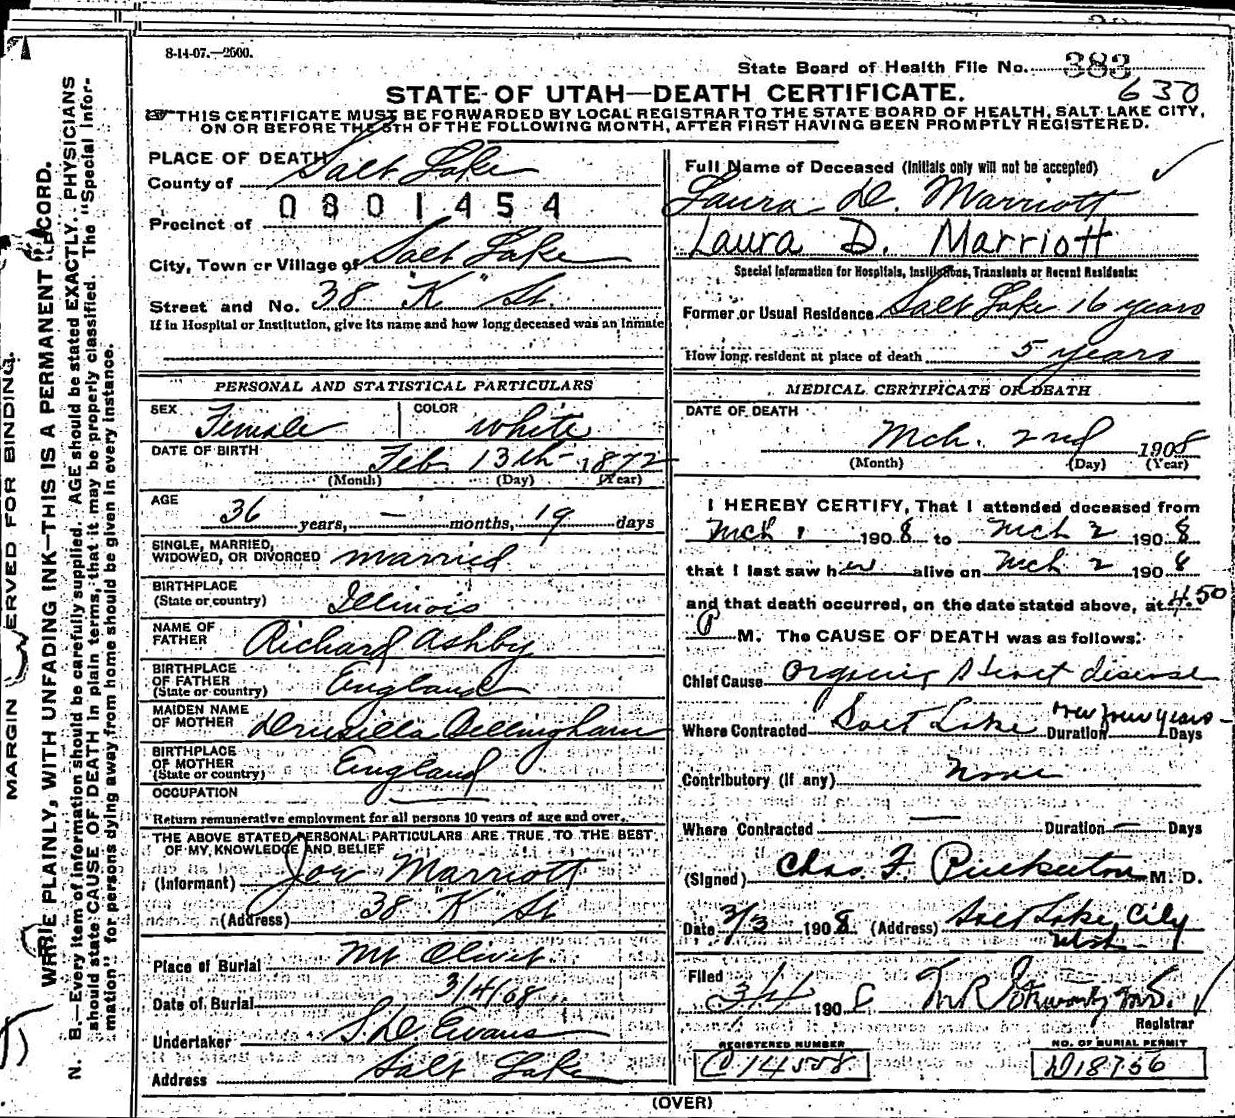 8-14-07.—2500.
State Board of Health File No. 383
630
STATE OF UTAH—DEATH CERTIFICATE.
THIS CERTIFICATE MUST BE FORWARDED BY LOCAL REGISTRAR TO THE STATE BOARD OF HEALTH, SALT LAKE CITY,
ON OR BEFORE THE 5TH OF THE FOLLOWING MONTH, AFTER FIRST HAVING BEEN PROMPTLY REGISTERED.
MARGIN RESERVED FOR BINDING.
WRITE PLAINLY, WITH UNFADING INK—THIS IS A PERMANENT RECORD.
N. B.—Every item of information should be carefully supplied. AGE should be stated EXACTLY. PHYSICIANS
should state CAUSE OF DEATH in plain terms, that it may be properly classified. The "Special Infor-
mation" for persons dying away from home should be given in every instance.
PLACE OF DEATH
County of Salt Lake
0801454
Precinct of
City, Town or Village of Salt Lake
Street and No. 38 "K" St.
If in Hospital or Institution, give its name and how long deceased was an inmate
PERSONAL AND STATISTICAL PARTICULARS
SEX Female COLOR White
DATE OF BIRTH Feb 13th 1872
(Month) (Day) (Year)
AGE
36 years, — months, 19 days
SINGLE, MARRIED,
WIDOWED, OR DIVORCED married
BIRTHPLACE
(State or country) Illinois
NAME OF
FATHER Richard Ashby
BIRTHPLACE
OF FATHER
(State or country) England
MAIDEN NAME
OF MOTHER Drusilla Bellingham
BIRTHPLACE
OF MOTHER
(State or country) England
OCCUPATION
Return remunerative employment for all persons 10 years of age and over.
THE ABOVE STATED PERSONAL PARTICULARS ARE TRUE TO THE BEST
OF MY KNOWLEDGE AND BELIEF
(Informant) Joe Marriott
(Address) 38 "K" St
Place of Burial Mt Olivet
Date of Burial 3/4/08
Undertaker S. D. Evans
Address Salt Lake
Full Name of Deceased (Initials only will not be accepted)
Laura D. Marriott
Laura D. Marriott
Special Information for Hospitals, Institutions, Transients or Recent Residents:
Former or Usual Residence Salt Lake 16 years
How long resident at place of death 5 years
MEDICAL CERTIFICATE OF DEATH
DATE OF DEATH
Mch. 2nd 1908
(Month) (Day) (Year)
I HEREBY CERTIFY, That I attended deceased from
Mch 1 1908 to Mch 2 1908
that I last saw her alive on Mch 2 1908
and that death occurred, on the date stated above, at 4.50
P M. The CAUSE OF DEATH was as follows:
Chief Cause Organic Heart disease
Where Contracted Salt Lake Duration years Days
Contributory (if any) None
Where Contracted — Duration — Days
(Signed) Chas. F. Pinkerton M. D.
Date 3/3 1908 (Address) Salt Lake City
Utah
Filed
3/4 190
Registrar
REGISTERED NUMBER NO. OF BURIAL PERMIT
C 14558 D18756
(OVER)